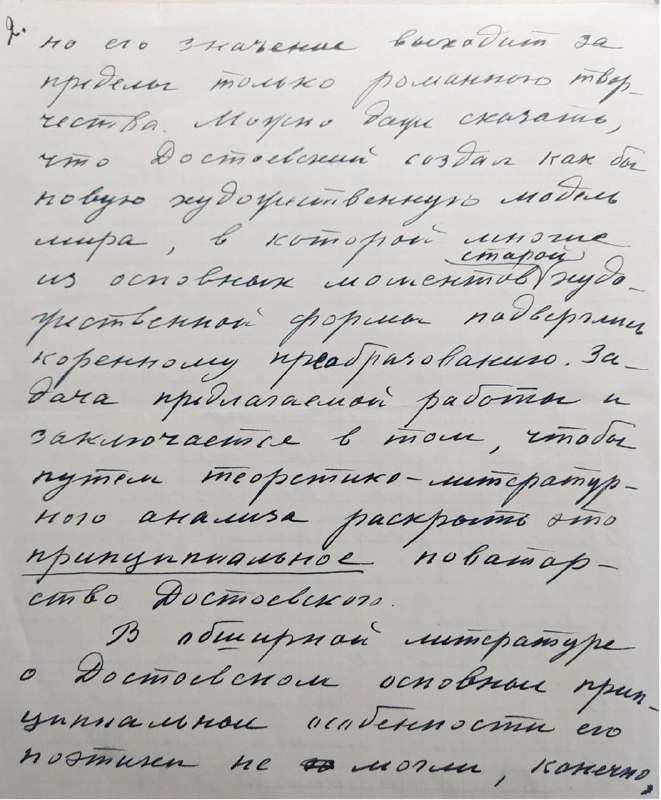 2.
но его значение выходит за
пределы только романного твор-
чества. Можно даже сказать,
что Достоевский создал как бы
новую художественную модель
мира, в которой многие
старой
из основных моментов худо-
жественной формы подверглись
коренному преобразованию. За-
дача предлагаемой работы и
заключается в том, чтобы
путем теоретико-литератур-
ного анализа раскрыть это
принципиальное новатор-
ство Достоевского.
В обширной литературе
о Достоевском основные прин-
ципиальные особенности его
поэтики не могли, конечно,